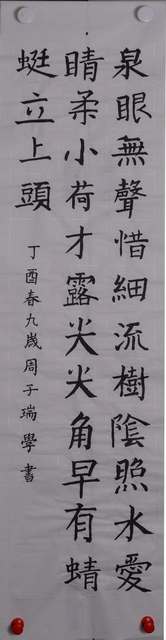 泉眼無聲惜細流樹陰照水愛
晴柔小荷才露尖尖角早有蜻
蜓立上頭
丁酉春九歲周子瑞學書